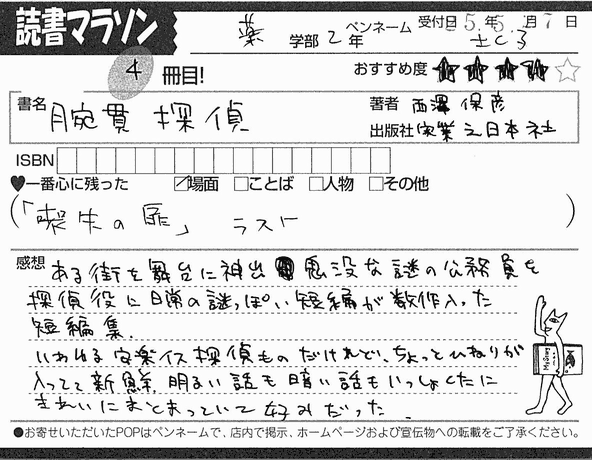 読書マラソン
薬 学部 2年 ペンネーム 受付日 25年 5月 7日
4 冊目!
おすすめ度 ★★★★☆
書名 腕貫探偵
著者 西澤保彦
出版社 実業之日本社
ISBN
♥一番心に残った ☑場面 □ことば □人物 □その他
(「喪失の扉」 ラスト)
感想 ある街を舞台に神出鬼没な謎の公務員を
探偵役に日常の謎っぽい短編が数作入った
短編集.
いわゆる安楽イス探偵ものだけれど、ちょっとひねりが
入ってて新鮮.明るい話も暗い話もいっしょくたに
きれいにまとまっていて好みだった.
●お寄せいただいたPOPはペンネームで、店内で掲示、ホームページおよび宣伝物への転載をご了承ください。